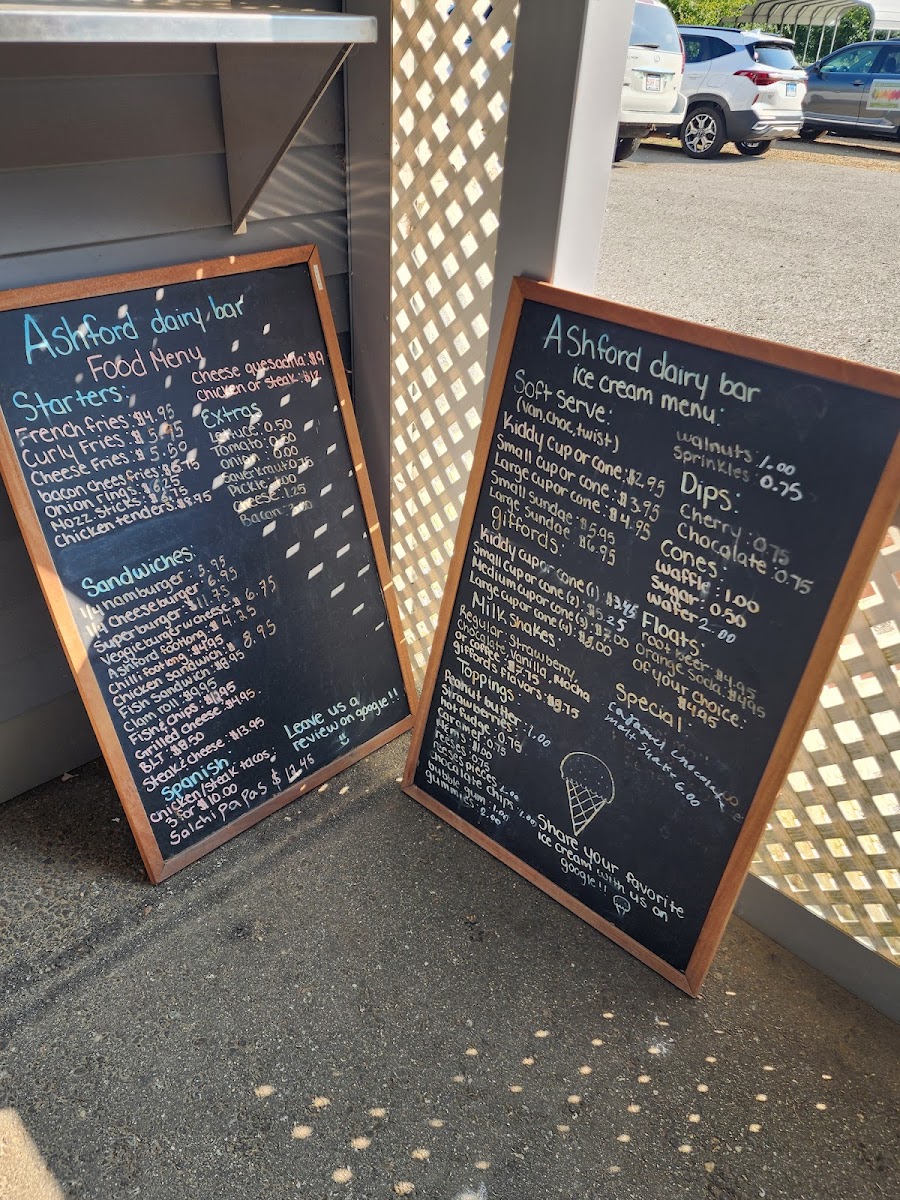 Ashford dairy bar
Food Menu
Starters:
French fries: $4.95
Curly Fries: $5.95
Cheese Fries: $5.50
bacon chees fries: $6.75
Onion rings: $6.25
Mozz. sticks: $6.75
Chicken tenders: $8.95
Cheese quesadilla: $9
Chicken or steak: $12
Extras
Lettuce: 0.50
Tomato: 0.50
onion:
Sauerkraut: 0.75
Pickle:
Cheese: 1.25
Bacon:
Sandwiches:
1/4 hamburger: 5.95
1/4 cheeseburger: 6.95
Super burger: $11.75
Veggie burger w cheese: $6.75
Ashford footlong: $4.25
Chili footlong: $4.95
Chicken sandwich: $8.95
Fish sandwich: $8.95
Clam roll: $9.95
Fish & chips:
Grilled cheese: $4.95.
BLT: $8.50
Steak & cheese: $13.95
Spanish:
chicken/steak tacos:
3 for $10.00
Salchi PaPas $
Leave us a
review on google!!
Ashford dairy bar
Ice cream menu:
Soft serve:
(Van, choc, twist)
Kiddy cup or cone: $2.95
Small cup or cone: $3.95
Large cup or cone: $4.95
Small Sundae: $5.95
Large Sundae: $6.95
giffords:
Kiddy cup or cone (1): $3.95
Small cup or cone (2): $5.25
Medium cup or cone (3): $
Large cup or cone (4):
Milk shakes:
Regular: Strawberry,
chocolate, Vanilla, Mocha
or coffee: $5.75
giffords flavors: $8.75
Toppings:
Peanut butter: 1.00
Strawberries:
hot fudge: 0.75
caramel: 0.75
M&M's: $1.00
reeses: 0.75
reeses pieces
chocolate chips: 1.00
bubble gum: 1.00
gummies: 2.00
walnuts: 1.00
Sprinkles: 0.75
Dips:
Cherry: 0.75
Chocolate: 0.75
Cones:
Waffle: 1.00
sugar: 0.50
water 2.00
Floats:
root beer: $4.95
Orange Soda: $4.95
or your choice:
$4.95
Special:
chocolate
malt shake 6.00
Share your favorite
ice cream with us on
google!!